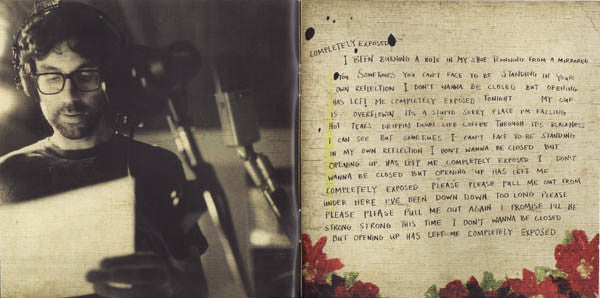 COMPLETELY EXPOSED
I BEEN BURNING A HOLE IN MY SHOE RUNNING FROM A MIRRORED
YOU SOMETIMES YOU CAN'T FACE TO BE STANDING IN YOUR
OWN REFLECTION I DON'T WANNA BE CLOSED BUT OPENING
HAS LEFT ME COMPLETELY EXPOSED TONIGHT MY CUP
IS OVERFLOWIN IT'S A STUPID SORRY PLACE I'M FALLING
HOT TEARS DRIPPIN DOWN LIKE COFFEE THROUGH IT'S BLACKNESS
I CAN SEE BUT SOMETIMES I CAN'T FACE TO BE STANDING
IN MY OWN REFLECTION I DON'T WANNA BE CLOSED BUT
OPENING UP HAS LEFT ME COMPLETELY EXPOSED I DON'T
WANNA BE CLOSED BUT OPENING UP HAS LEFT ME
COMPLETELY EXPOSED PLEASE PLEASE PULL ME OUT FROM
UNDER HERE I'VE BEEN DOWN DOWN TOO LONG PLEASE
PLEASE PLEASE PULL ME OUT AGAIN I PROMISE I'LL BE
STRONG STRONG THIS TIME I DON'T WANNA BE CLOSED
BUT OPENING UP HAS LEFT ME COMPLETELY EXPOSED